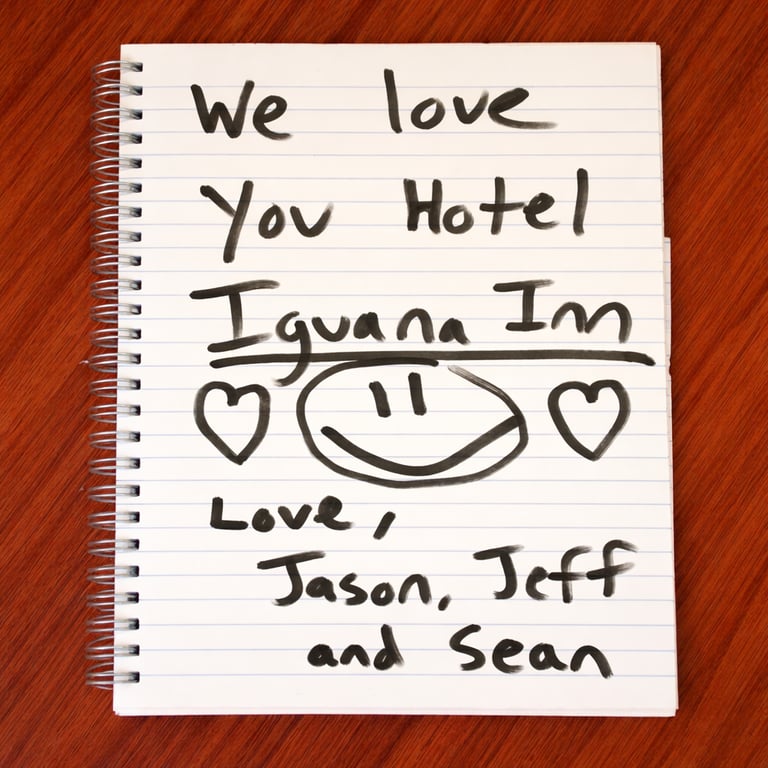 We love
You Hotel
Iguana Inn
Love,
Jason, Jeff
and Sean